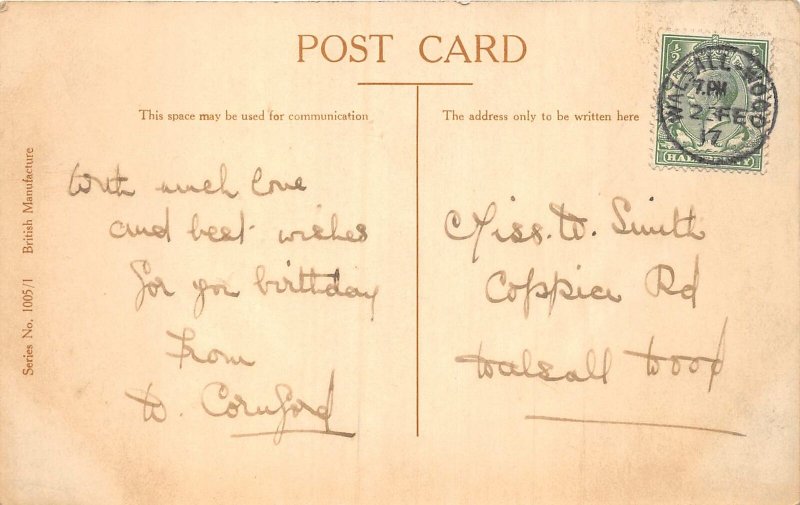 POST CARD
This space may be used for communication
The address only to be written here
With much love
and best wishes
for you birthday
From
W. Cornford
Miss. W. Smith
Coppice Rd
Walsall Wood
Series No. 1005/1 British Manufacture
½
WALSALL-WOOD
7.PM
23 FE
17
HALFPENNY